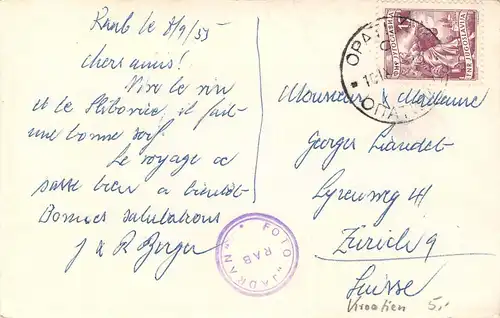 Raab le 8/9/55
chers amis!
Vive le vin
et le Slibovic, il fait
une bonne soif.
Le voyage se
passe bien a bientôt
Bonnes salutations
J & R Berger
FOTO "JADRAN"
RAB
ОПАТ
Monsieur & Madame
Georges Liaudet
Lyrenweg 41
Zürich 9
Suisse
Kroatien 5,-